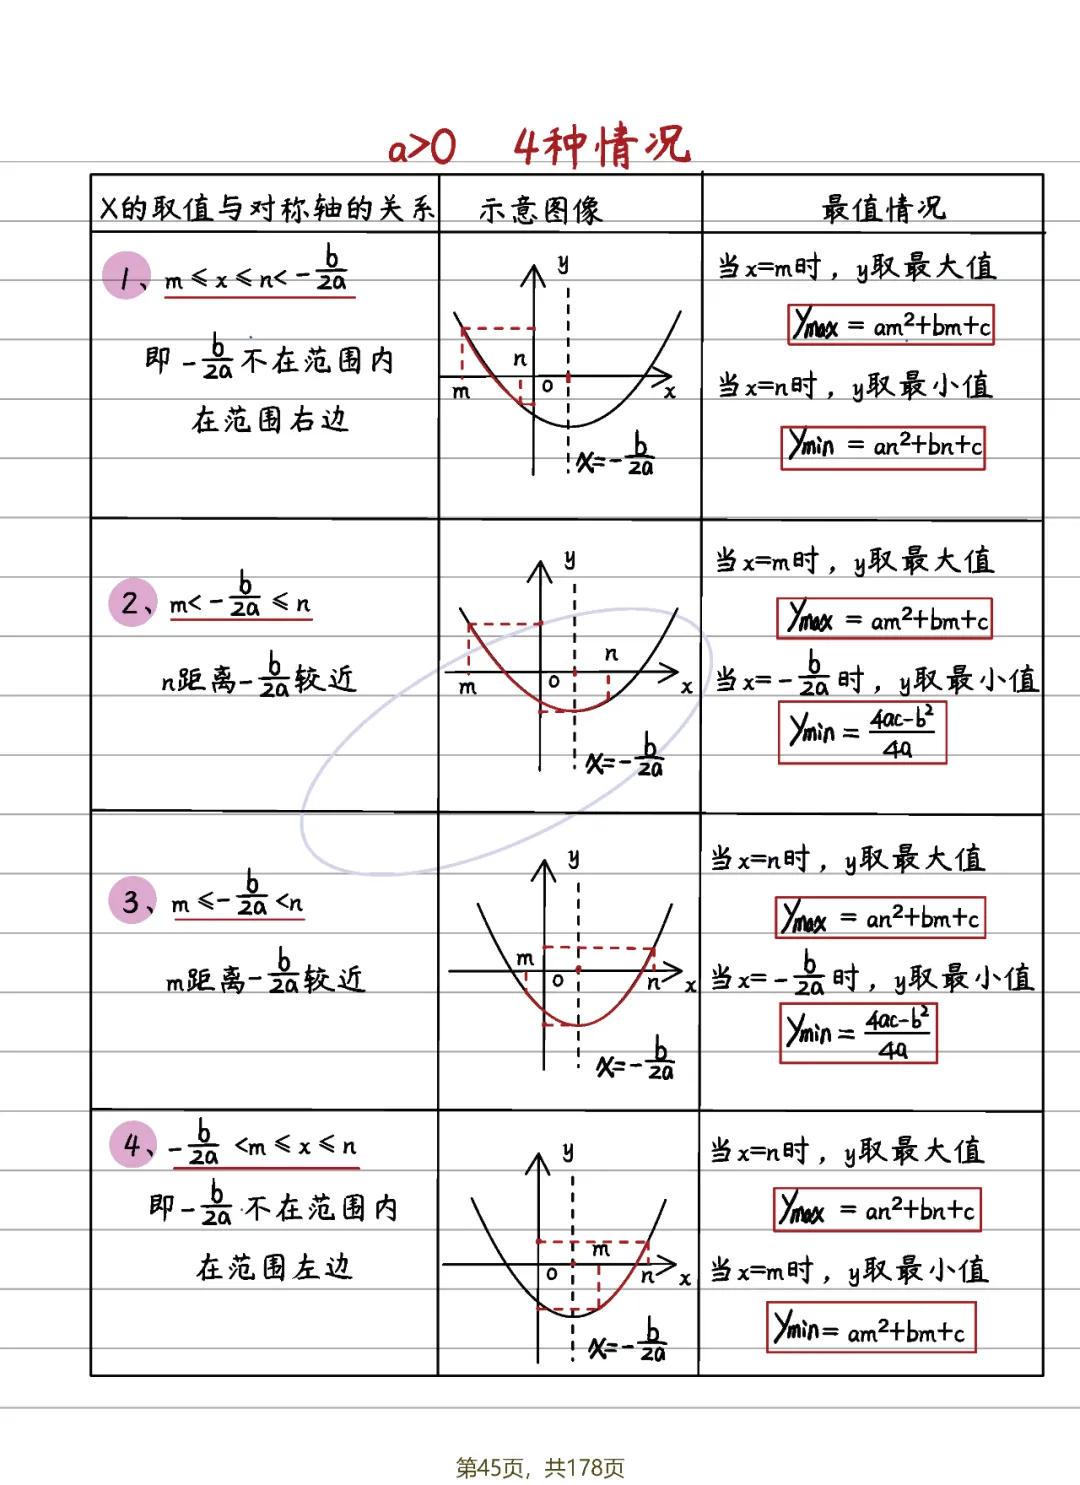 a>0 4种情况
X的取值与对称轴的关系 示意图像 最值情况
1、m≤x≤n<-b/2a
即-b/2a不在范围内
在范围右边
y
n
m
o
x
x=-b/2a
当x=m时，y取最大值
Ymax=am²+bm+c
当x=n时，y取最小值
Ymin=an²+bn+c
2、m<-b/2a≤n
n距离-b/2a较近
y
n
m
o
x
x=-b/2a
当x=m时，y取最大值
Ymax=am²+bm+c
当x=-b/2a时，y取最小值
Ymin=4ac-b²/4a
3、m≤-b/2a<n
m距离-b/2a较近
y
m
o
n
x
x=-b/2a
当x=n时，y取最大值
Ymax=an²+bm+c
当x=-b/2a时，y取最小值
Ymin=4ac-b²/4a
4、-b/2a<m≤x≤n
即-b/2a不在范围内
在范围左边
y
m
o
n
x
x=-b/2a
当x=n时，y取最大值
Ymax=an²+bn+c
当x=m时，y取最小值
Ymin=am²+bm+c
第45页，共178页